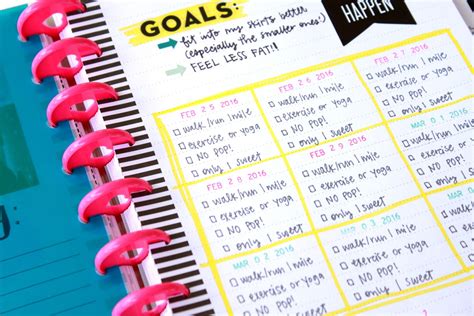 GOALS:
fit into my skirts better
(especially the smaller ones!)
FEEL LESS FAT!!
HAPPEN
FEB 25 2016
walk/run 1 mile
exercise or yoga
NO POP!
only 1 sweet
FEB 26 2016
walk/run 1 mile
exercise or yoga
NO POP!
only 1 sweet
FEB 27 2016
walk/run 1 mile
exercise or yoga
NO POP!
only 1 sweet
FEB 28 2016
walk/run 1 mile
exercise or yoga
NO POP!
only 1 sweet
FEB 29 2016
walk/run 1 mile
exercise or yoga
NO POP!
only 1 sweet
MAR 01 2016
walk/run
exercise
NO POP!
only 1
MAR 02 2016
walk/run 1 mile
exercise or yoga
NO POP!
MAR 03 2016
walk/run 1 mile
exercise or yoga
NO POP!
only 1 sweet